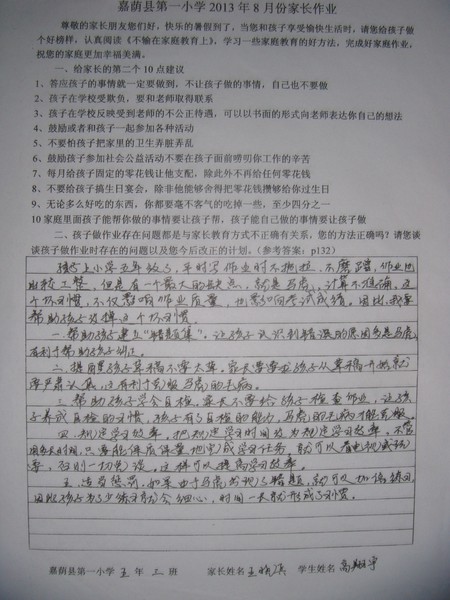 嘉荫县第一小学 2013 年 8 月份家长作业
尊敬的家长朋友您们好，快乐的暑假到了，当您和孩子享受愉快生活时，请您给孩子做
个好榜样，认真阅读《不输在家庭教育上》，学习一些家庭教育的好方法，完成好家庭作业，
祝您的家庭更加幸福美满。
一、给家长的第二个 10 点建议
1、答应孩子的事情就一定要做到，不让孩子做的事情，自己也不要做
2、孩子在学校受欺负，要和老师取得联系
3、孩子在学校反映受到老师的不公正待遇，可以以书面的形式向老师表达你自己的想法
4、鼓励或者和孩子一起参加各种活动
5、不要怕孩子把家里的卫生弄脏弄乱
6、鼓励孩子参加社会公益活动不要在孩子面前唠叨你工作的辛苦
7、每月给孩子固定的零花钱让他支配，除此外不再给任何零花钱
8、不要给孩子搞生日宴会，除非他能够舍得把零花钱攒够给你过生日
9、无论多么好吃的东西，你都要毫不客气的吃掉一些，至少四分之一
10 家庭里面孩子能帮你做的事情要让孩子帮，孩子能自己做的事情要让孩子做
二、孩子在家庭作业上存在问题都是与家长教育方式不正确有关系，您的方法正确吗？请您谈
谈孩子做作业时存在的问题以及您今后改正的计划。（参考答案：p132）
孩子上小学五年级了，平时写作业时不拖拉，不磨蹭，作业也
比较工整，但是有一个最大的缺点，就是马虎，计算不准确，这
个坏习惯，不仅影响作业质量，也影响考试成绩。因此，我要
帮助孩子改掉这个坏习惯。
一、帮助孩子建立“错题集”，让孩子认识到错误的原因是马虎，
有利于帮助孩子纠正。
二、提醒孩子草稿不要太草。家长要求孩子从草稿开始就
要严肃认真，这有利于克服马虎的毛病。
三、帮助孩子学会自检，家长不要给孩子检查作业，让孩
子养成自检的习惯，孩子有了自检的能力，马虎的毛病才能克服。
四、规定学习效率，把规定学习时间改为规定学习效率，不管
用多长时间，只要能保质保量地完成学习任务，就可以看电视或玩
耍，否则一切免谈，这样可以提高学习效率。
五、适当惩罚，如果由于马虎出现了错题，就可以加倍练习，
因此孩子为了少练习就会细心，时间一长就形成了习惯。
嘉荫县第一小学 五 年 三 班 家长姓名 学生姓名 高翔宇